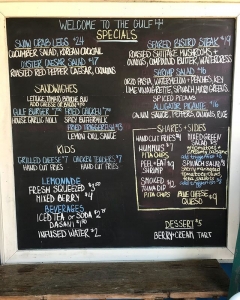 WELCOME TO THE GULF
SPECIALS
SNOW CRAB LEGS $24
CUCUMBER SALAD, KOREAN COCKTAIL
OYSTER CAESAR SALAD $17
ROASTED RED PEPPER CAESAR, ONIONS
SANDWICHES
LETTUCE TOMATO
ADD CHEESE OR BACON
GULF BURGER
HOUSE GARLIC ROLL
FRIED
SPICY BUTTERMILK
LEMON DILL SAUCE
KIDS
GRILLED CHEESE $7
HAND CUT FRIES
CHICKEN TENDERS $7
HAND CUT FRIES
LEMONADE
FRESH SQUEEZED
MIXED BERRY $4
BEVERAGES
ICED TEA OR SODA
DASANI
INFUSED WATER $2
SEARED BISTRO STEAK
ROASTED SHIITAKE MUSHROOMS
ONIONS, COMPOUND BUTTER, WATERCRESS
SHRIMP SALAD $16
ORZO PASTA, WATERMELON, PEACHES,
LIME VINAIGRETTE, SPINACH, MIXED GREENS,
SPICED PECANS
ALLIGATOR PICANTE $16
CAJUN SAUCE, PEPPERS, ONIONS, RICE
SHARES + SIDES
HAND CUT FRIES
HUMMUS
PITA CHIPS
PEEL + EAT
SHRIMP
SMOKED
TUNA DIP
PITA CHIPS
MIXED GREEN
SALAD
SPINACH
SALAD
BLUE CHEESE
QUESO
DESSERT
BERRY + CREAM TART